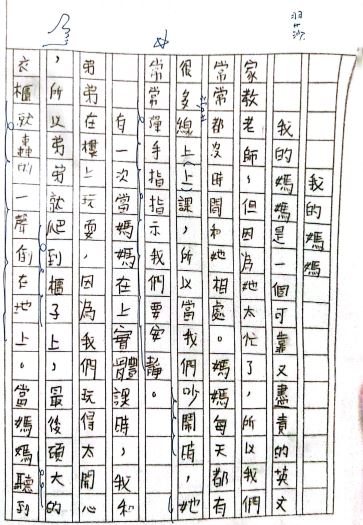 我的媽媽
我的媽媽是一個可靠又盡責的英文
家教老師，但因為她太忙了，所以我們
常常都沒時間和她相處。媽媽每天都有
很多線上(上)課，所以當我們吵鬧時，她
常常彈手指指示我們要安靜。
有一次當媽媽在上實體課時，我和
弟弟在樓上玩耍，因為我們玩得太開心
，所以弟弟就爬到櫃子上，最後碩大的
衣櫃就轟的一聲倒在地上。當媽媽聽到